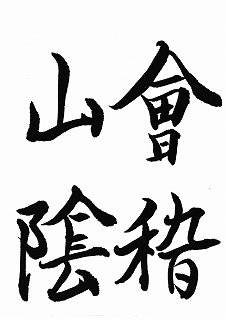 會稽
山陰